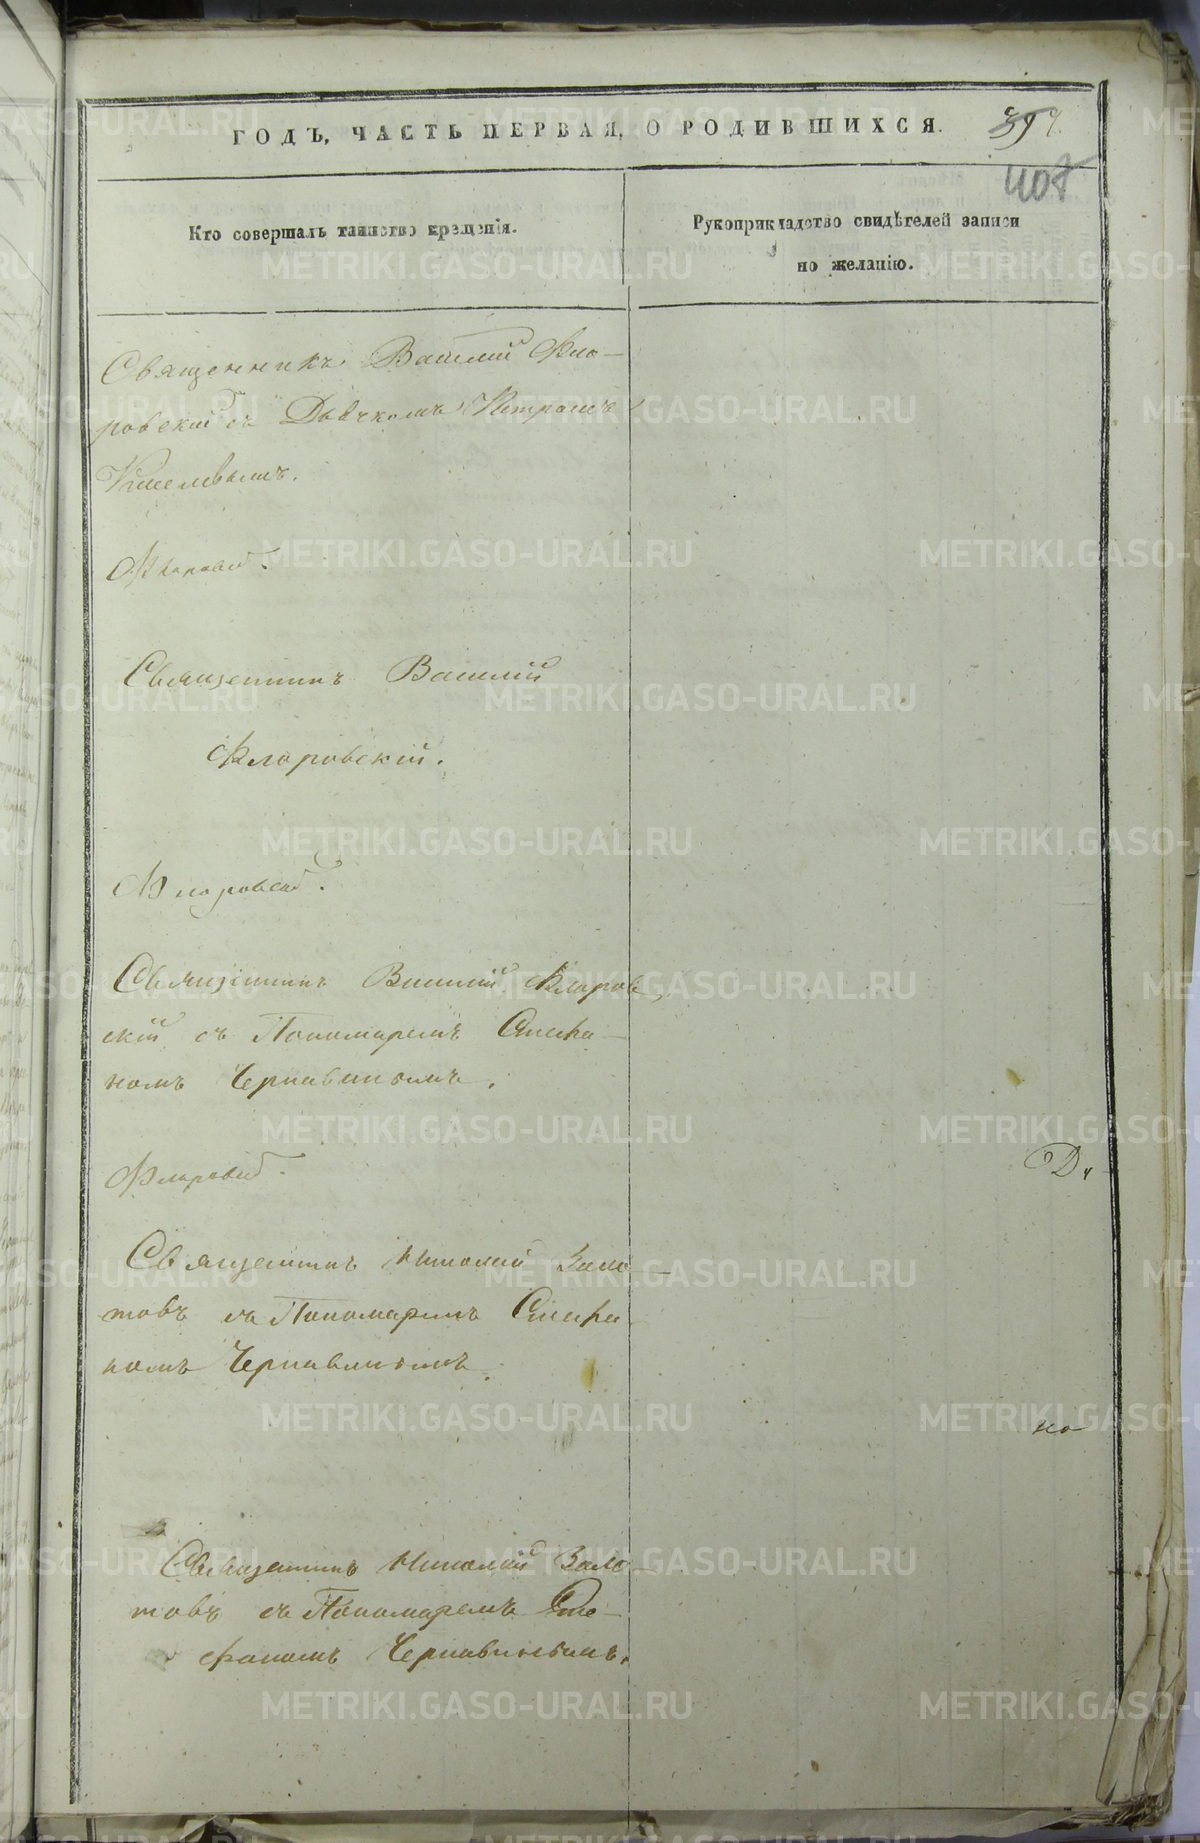 ГОДЪ, ЧАСТЬ ПЕРВАЯ, О РОДИВШИХСЯ.
408
Кто совершалъ таинство крещенія.
Рукоприкладство свидѣтелей записи
по желанію.
Священникъ Василій Фло-
ровскій съ Дьячкомъ Петромъ
Киселевымъ.
Флоровскій.
Священникъ Василій
Флоровскій.
Флоровскій.
Священникъ Василій Флоров-
скій съ Пономаремъ Стефа-
номъ Чернавинымъ.
Флоровскій.
Священникъ Николай Золо-
товъ съ Пономаремъ Стефа-
номъ Чернавинымъ.
но
Священникъ Николай Золо-
товъ съ Пономаремъ Сте-
фаномъ Чернавинымъ.
METRIKI.GASO-URAL.RU